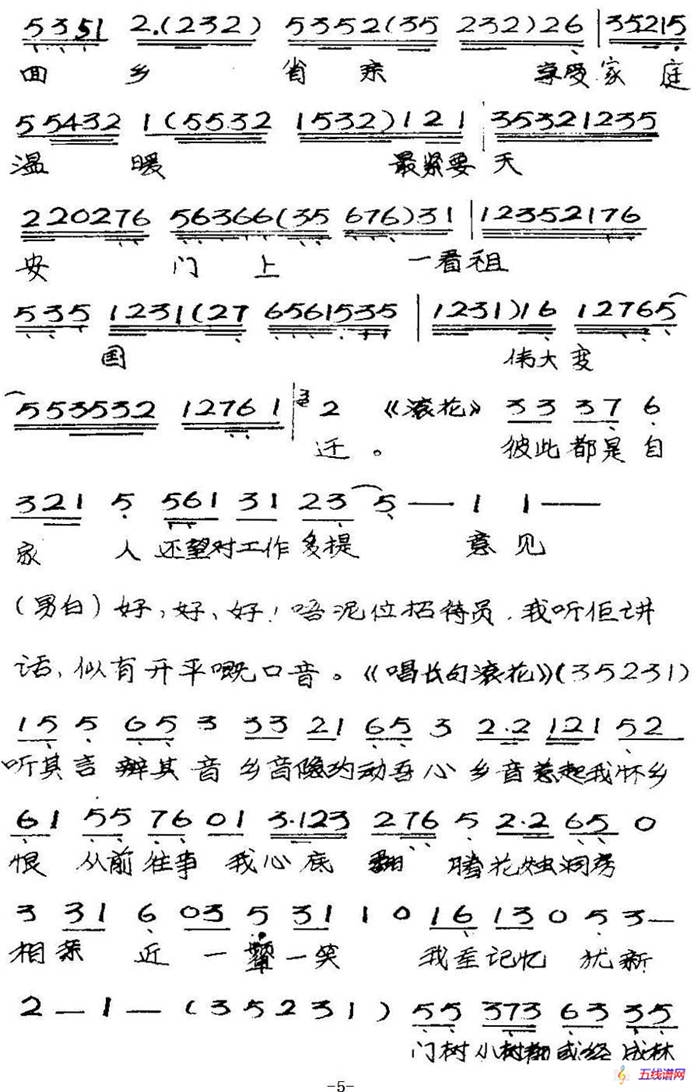 5351 2.(232) 5352(35 232)26 | 35215
回 乡 省 亲 享受家庭
55432 1(5532 1532)121 | 35321235
温 暖 最紧要天
220276 56366(35 676)31 | 12352176
安 门 上 一看祖
535 1231(27 6561535 | 1231)16 12765
国 伟大变
553532 12761 | 3 2 《滚花》 33 37 6
迁。 彼此都是自
321 5 561 31 23 5 — 1 1 —
家 人 还望对工作多提 意见
(男白)好,好、好!唔泥位招待员,我听佢讲
话,似有开平嘅口音。《唱长句滚花》(35231)
15 5 65 3 33 21 65 3 2.2 121 52
听其言 辨其音 乡音隐约动吾心 乡音惹起我怀乡
61 55 76 01 3.123 276 5 2.2 65 0
恨 从前往事 我心底 翻 腾花烛洞房
3 31 6 03 5 31 1 0 16 13 0 5 3 —
相亲 近 一颦一笑 我至记忆 犹新
2 — 1 — (35231) 55 373 63 35
门树小树都或经成林
-5-
五线谱网